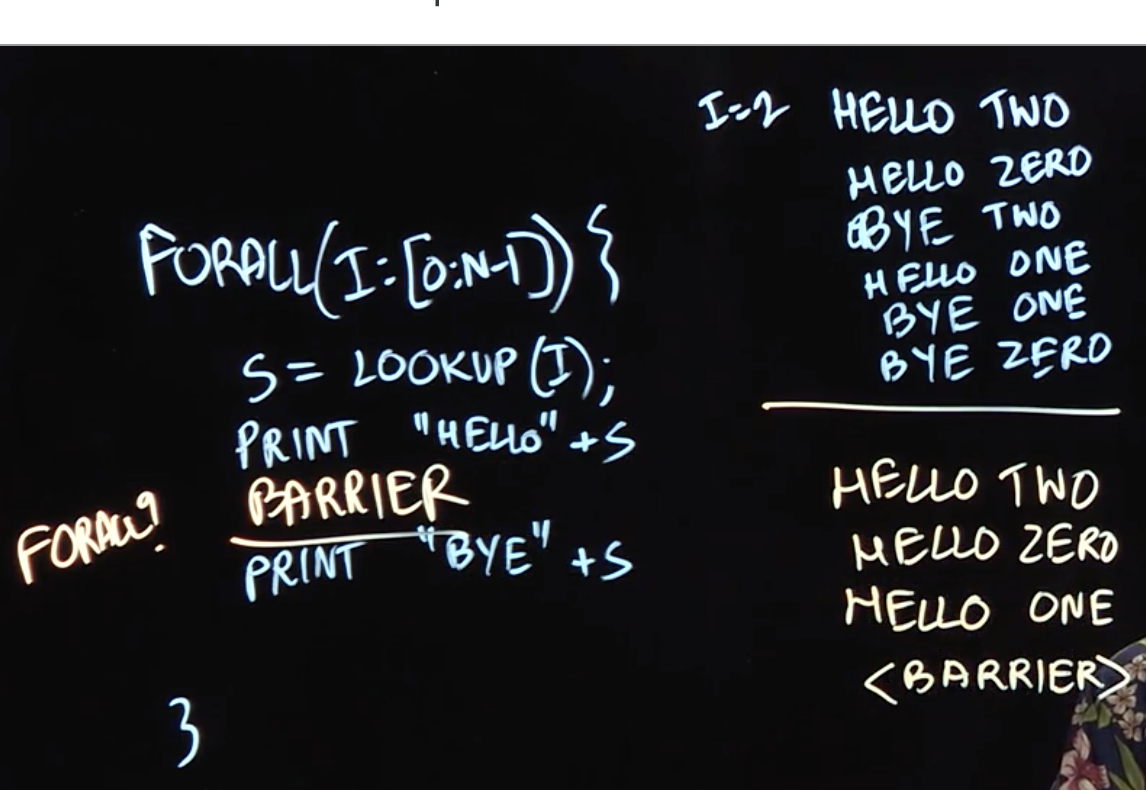 FORALL(I:[0:N-1]) {
S = LOOKUP(I);
PRINT "HELLO" + S
BARRIER
FORALL?
PRINT "BYE" + S
}
I=2 HELLO TWO
HELLO ZERO
BYE TWO
HELLO ONE
BYE ONE
BYE ZERO
HELLO TWO
HELLO ZERO
HELLO ONE
<BARRIER>